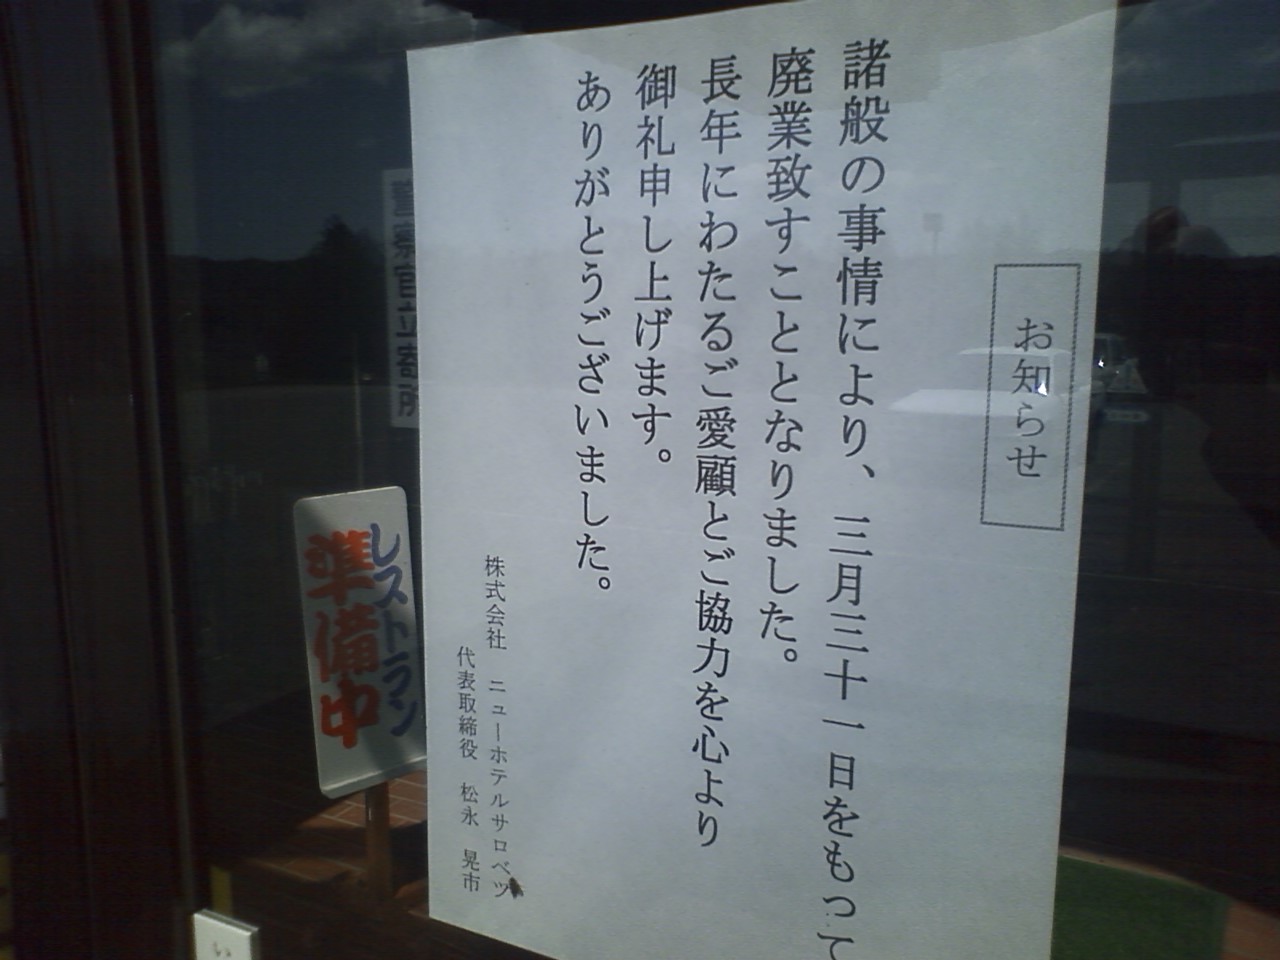 お知らせ
諸般の事情により、三月三十一日をもって
廃業致すこととなりました。
長年にわたるご愛顧とご協力を心より
御礼申し上げます。
ありがとうございました。
株式会社 ニューホテルサロベツ
代表取締役 松永 晃市
警察官立寄所
レストラン
準備中
い